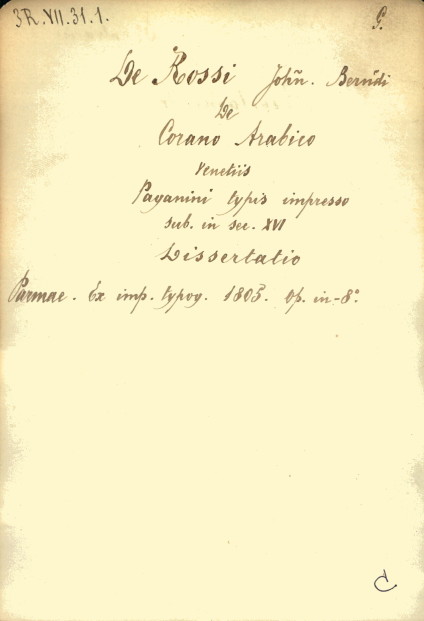 3R.VII.31.1. G.
De Rossi Joħn. Berñdi
De
Corano Arabico
Venetiis
Paganini typis impresso
sub. in sec. XVI
Dissertatio
Parmae. Ex imp. typog. 1805. Op. in-8°.
C